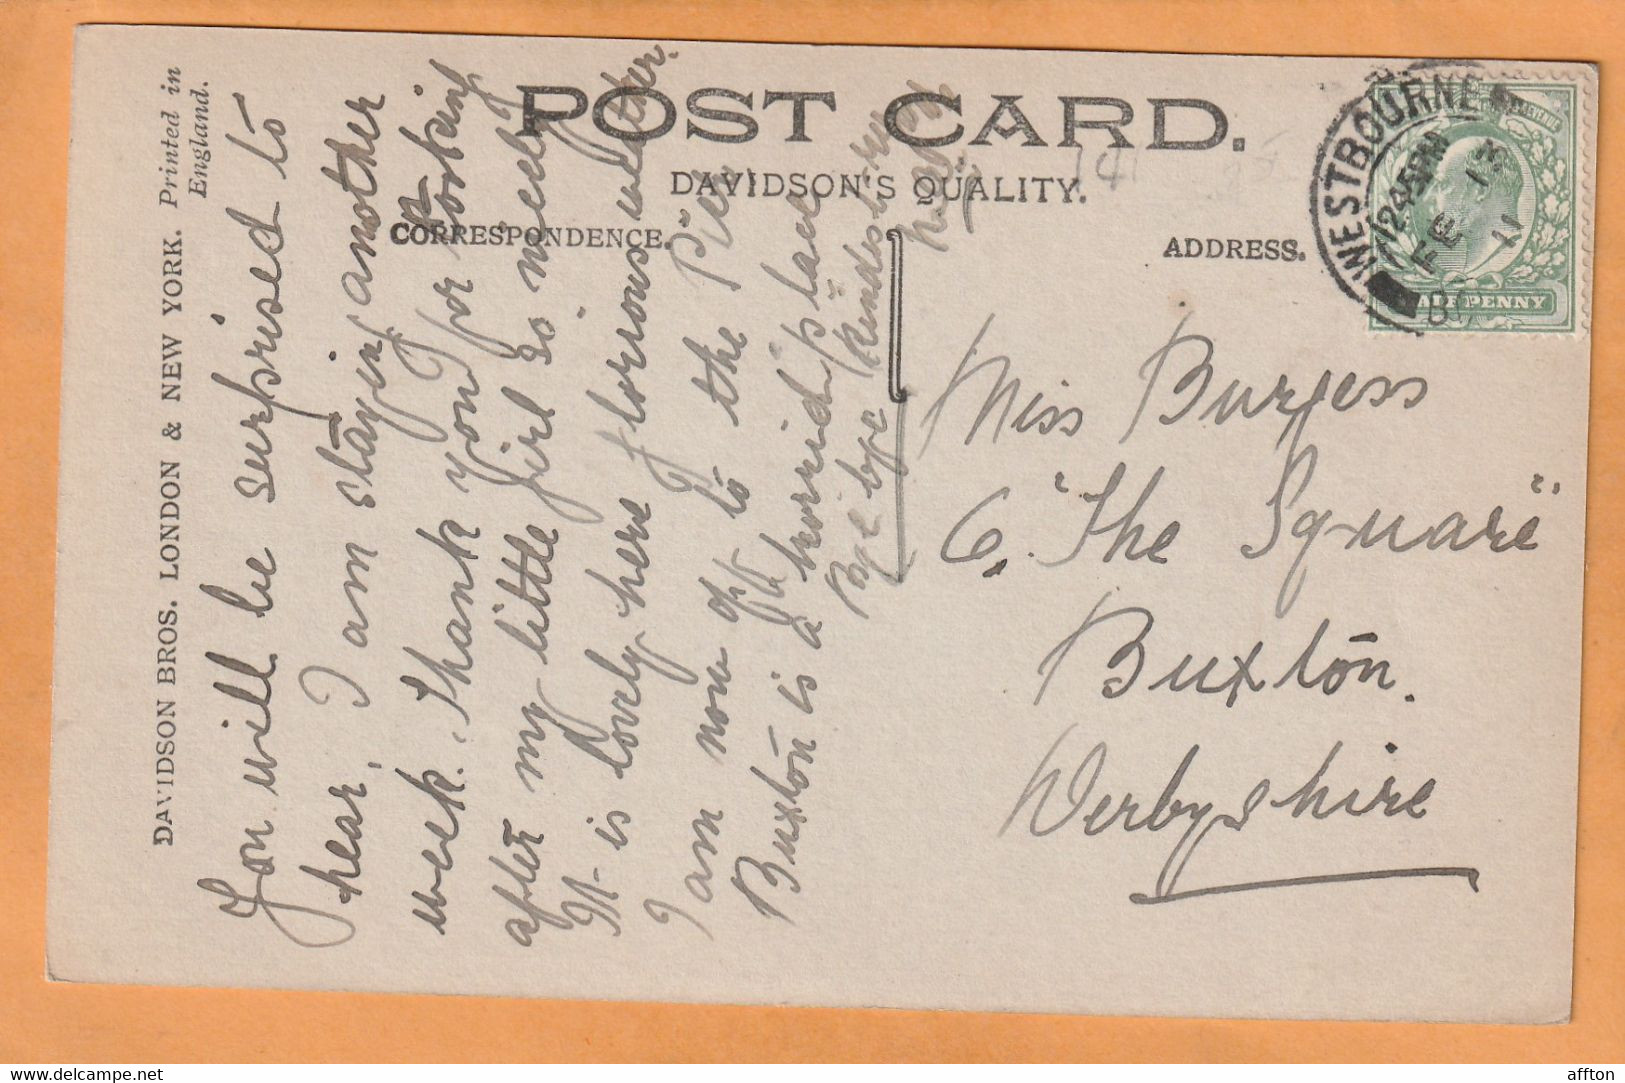 POST CARD.
DAVIDSON'S QUALITY.
CORRESPONDENCE.
ADDRESS.
DAVIDSON BROS. LONDON & NEW YORK. Printed in
England.
You will be surprised to
hear, I am staying another
week. Thank you for looking
after my little girl so nicely
It is lovely here glorious weather.
I am now off to the Pier
Buxton is a horrid place
Bye bye Kindest
Miss Burgess
6. "The Square"
Buxton.
Derbyshire
WESTBOURNE
12 45 PM
FE 16
11
REVENUE
HALF PENNY
141
afften